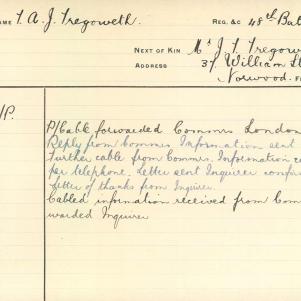 NAME T. A. J. Tregoweth. REG. &C 48th Bat
NEXT OF KIN Mr J. T. Tregow
ADDRESS 37 William St
Norwood.
P/Cable forwarded Commrs London
Reply from Commrs. Information sent
Further cable from Commrs. Information co
per telephone. Letter sent Inquirer confir
Letter of thanks from Inquirer.
Cabled information received from Com
warded Inquirer